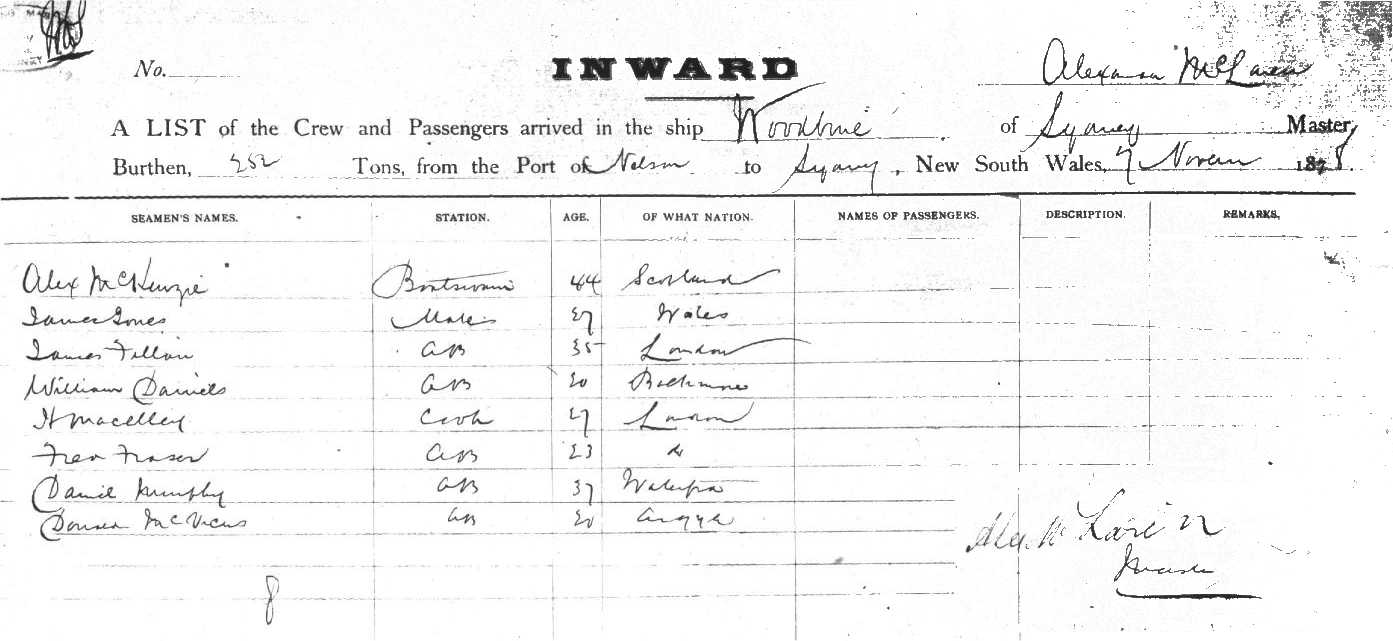 No. INWARD Alexander McLaren
A LIST of the Crew and Passengers arrived in the ship Woodbine of Sydney Master,
Burthen, 252 Tons, from the Port of Nelson to Sydney, New South Wales, 7 Novem 1878.
SEAMEN'S NAMES. STATION. AGE. OF WHAT NATION. NAMES OF PASSENGERS. DESCRIPTION. REMARKS.
Alex McKenzie Boatswain 44 Scotland
James Jones Mate 27 Wales
James AB 35 London
William Daniels AB 20
H Cook 27 London
Fred Fraser AB 23
Daniel Murphy AB 37
McVicus AB 20 Argyle
Alex Mc Laren
Master
8